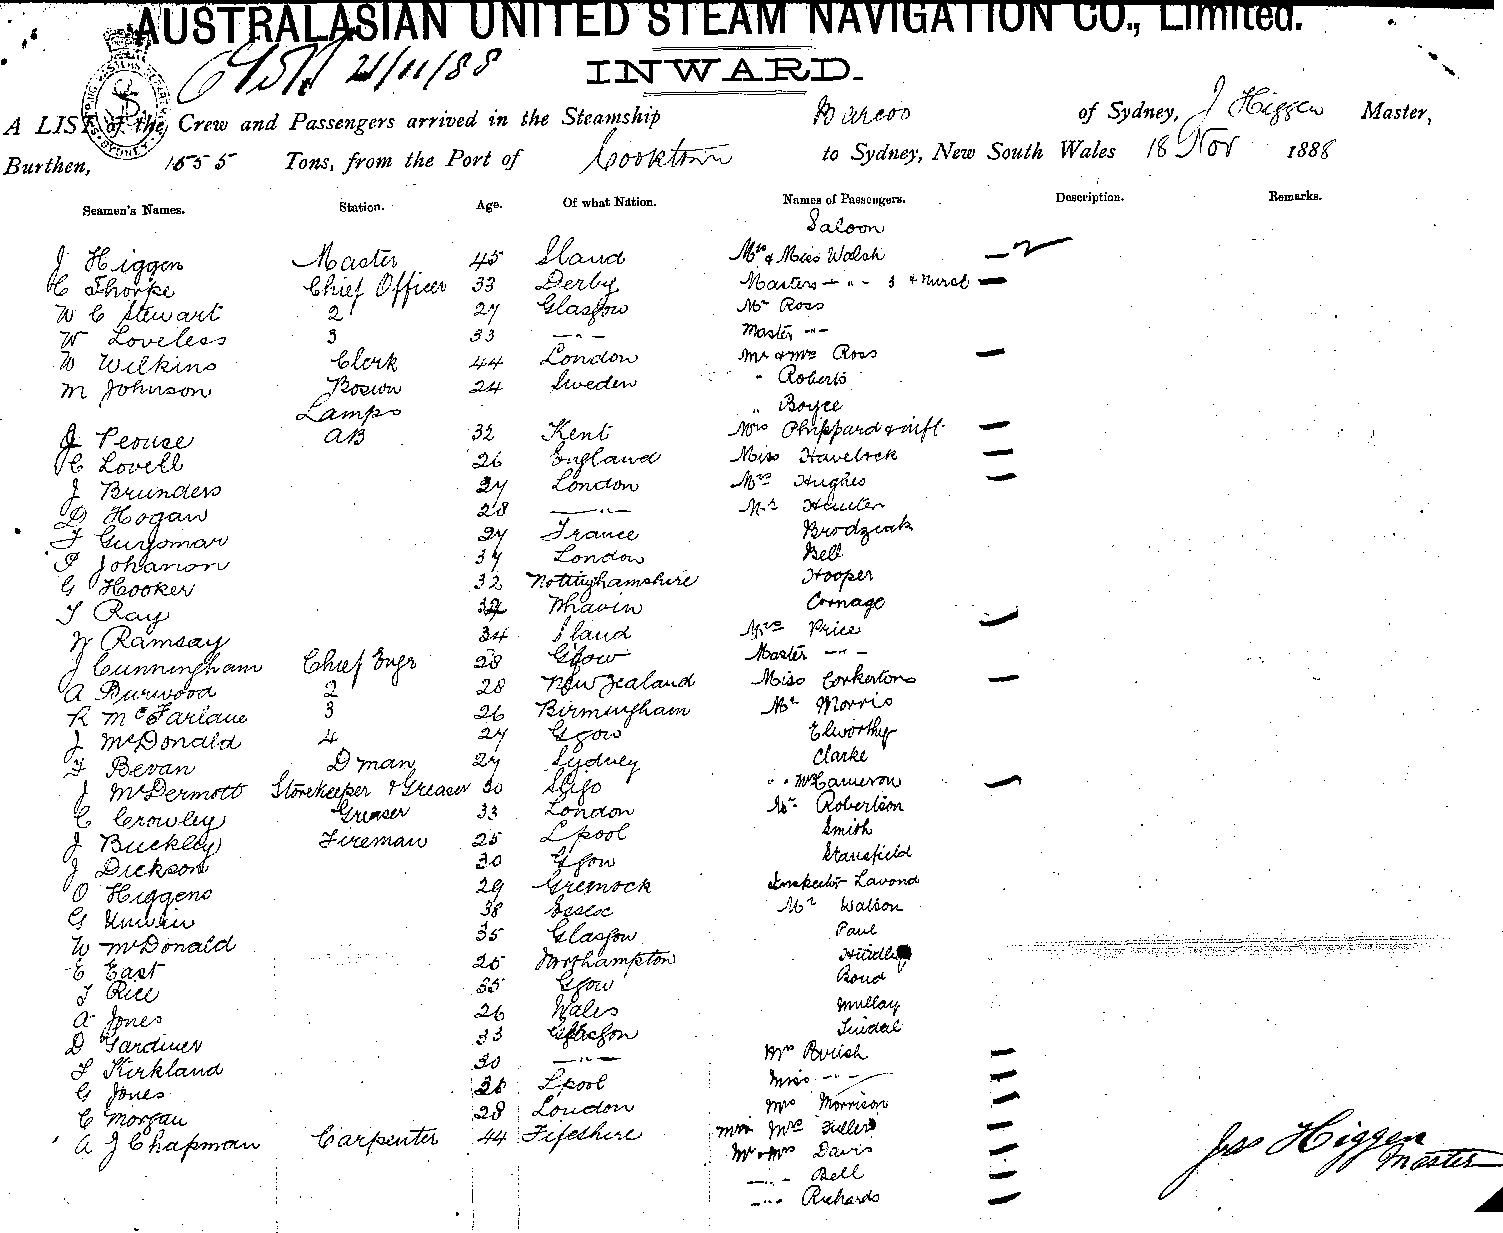 AUSTRALASIAN UNITED STEAM NAVIGATION CO., Limited.
21/11/88
INWARD.
A LIST of the Crew and Passengers arrived in the Steamship Barcoo of Sydney, J Higgen Master,
Burthen, 1555 Tons, from the Port of Cooktown to Sydney, New South Wales 18 Nov 1888
Seamen's Names. Station. Age. Of what Nation. Names of Passengers. Description. Remarks.
Saloon
J Higgen Master 45 Mrs & Miss Walsh
C Thorpe Chief Officer 33 Derby Masters - " - 3 & Nurse
W C Stewart 2 27 Glasgow Mr Ross
W Loveless 3 33 - " - Master - " -
W Wilkins Clerk 44 London Mr & Mrs Ross
M Johnson Bosun 24 Sweden " Roberts
Lamps " Boyce
J Pearse AB 32 Kent Mrs Phippard &
C Lovell 26 England Miss Havelock
J Brunders 27 London Mrs Hughes
D Hogan 28 - " - Mr Hunter
F Guyomar 27 France Brodziak
P Johanson 37 London Bell
G Hooker 32 Nottinghamshire Hooper
T Ray Cornage
W Ramsay 34 Mrs Price
J Cunningham Chief Engr 28 Ggow Master - " -
A Burwood 2 28 New Zealand Miss Corkertons
R McFarlane 3 26 Birmingham Mr Morris
J McDonald 4 27 Ggow Elworthy
F Bevan D man 27 Sydney Clarke
J McDermott Storekeeper & Greaser 30 Sligo " " McCameron
C Crowley Greaser 33 London Mr Robertson
J Buckley Fireman 25 Lpool Smith
J Dickson 30 Ggow Stansfield
O Higgens 29 Greenock Inspector Lavond
G Unwin 38 Essex Mr Watson
W McDonald 35 Glasgow Paul
E East 25 Northampton
T Rice 35 Ggow Bond
A Jones 26 Wales Mullay
D Gardiner 33 Glasgow Lindal
T Kirkland 30 - " - Mrs
G Jones Lpool Miss - " -
C Morgan 28 London Mrs Morrison
A J Chapman Carpenter 44 Fifeshire Mrs Fuller
Mr & Mrs Davis
- " - Bell
- " - Richards
Jas Higgen
Master